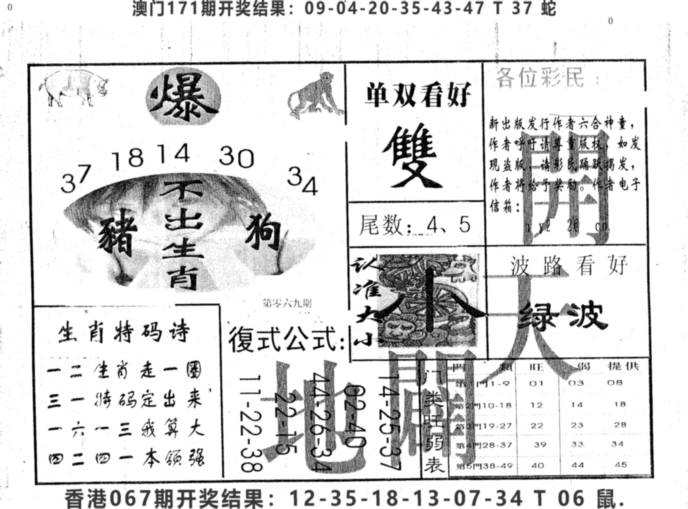 澳门171期开奖结果：09-04-20-35-43-47 T 37 蛇
爆
37 18 14 30 34
不出生肖
豬 狗
第零六九期
单双看好
雙
尾数：4、5
各位彩民：
新出版发行作者六合神童，
作者呼吁请尊重版权，如发
现盗版，请彩民踊跃揭发，
作者将给予奖励。作者电子
信箱：
开天
認准大小
小
波路看好
绿波
生肖特码诗
一二生肖走一圈
三一特码定出来
一六一三我算大
四二四一本领强
復式公式：
11-22-38
22-15
44-26-34
02-40
14-25-37
地闢
门类旺弱表
門 類 旺 弱 提供
第1門1-9 01 03 08
第2門10-18 12 14 18
第3門19-27 22 23 28
第4門28-37 39 33 34
第5門38-49 40 44 45
香港067期开奖结果：12-35-18-13-07-34 T 06 鼠.